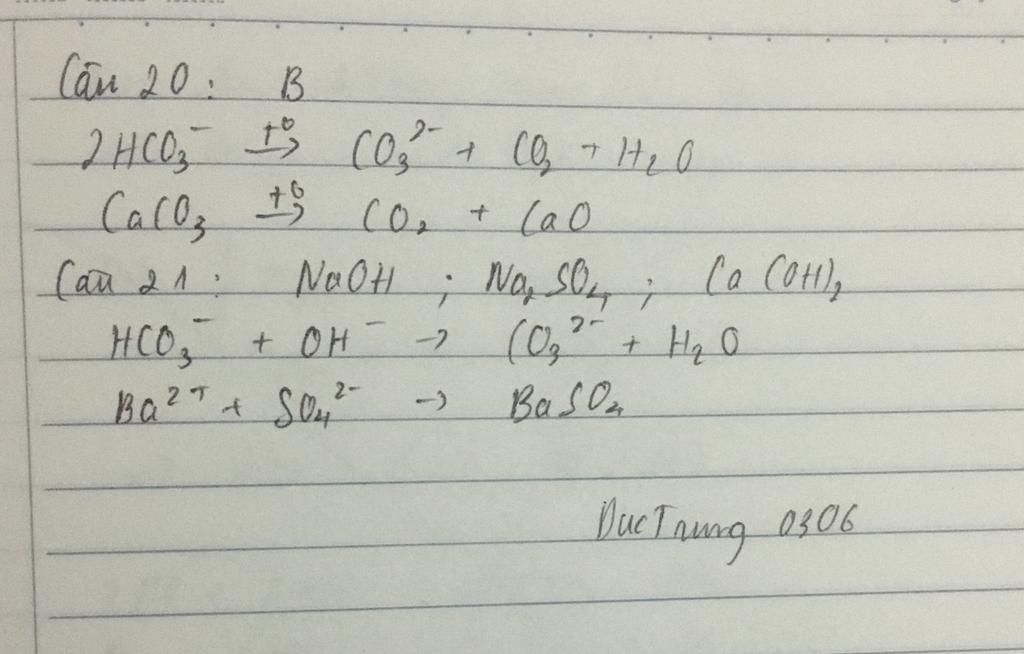 Câu 20: B
2HCO₃⁻ →(+0) CO₃²⁻ + CO₂ + H₂O
CaCO₃ →(+0) CO₂ + CaO
Câu 21: NaOH ; Na₂SO₄ ; Ca(OH)₂
HCO₃⁻ + OH⁻ → CO₃²⁻ + H₂O
Ba²⁺ + SO₄²⁻ → BaSO₄
DucTrung 0306